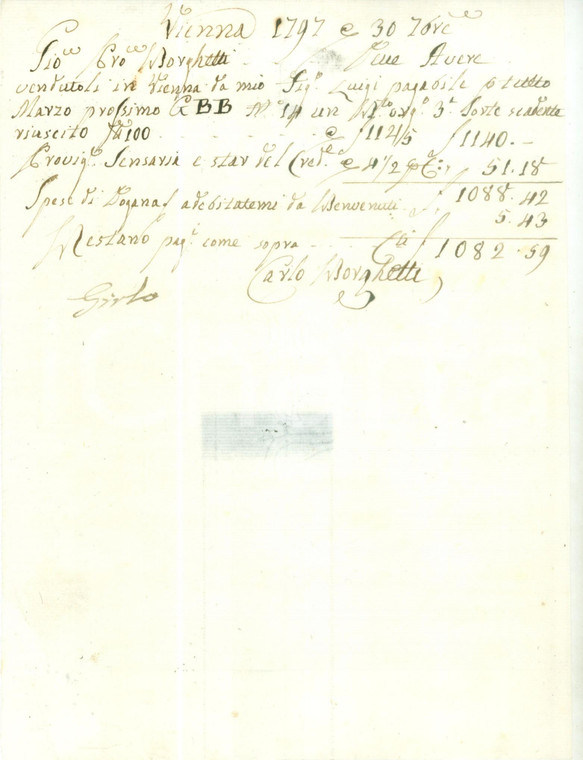 Vienna 1797 e 30 7bre
Gio Bor Borghetti Deve Avere
vendutoli in Vienna da mio Sigr Luigi pagabile p tutto
Marzo prossimo G BB N. 14 un orgo 3a Sorte
riuscito 100 e f 114/5 f 1140.-
Provigne Sensaria e star del Cred. e 4 1/2 p C.o 51.18
Spese di Dogana adebitatemi da Benvenuti f 1088.42
5.43
Restano pag. come sopra f 1082.59
Carlo Borghetti
Girlo